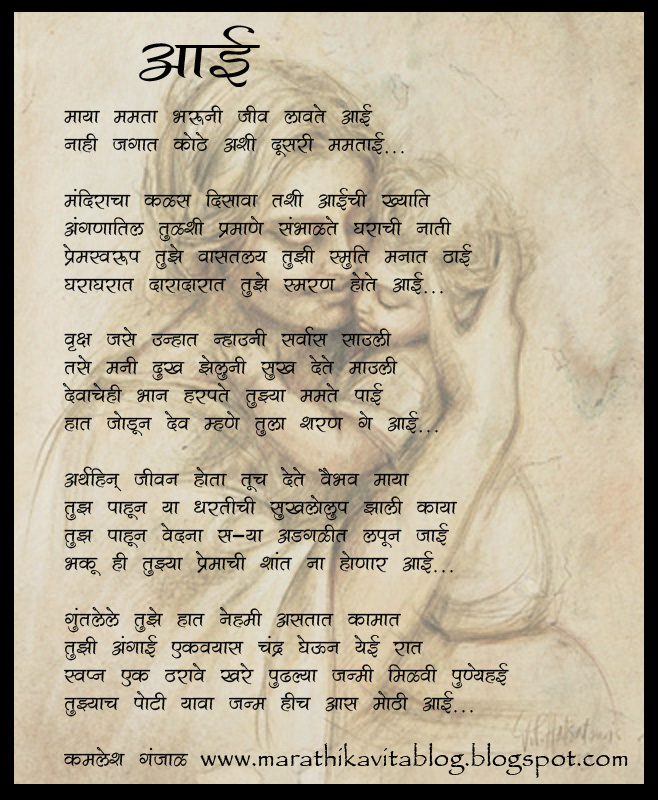 आई
माया ममता भरूनी जीव लावते आई
नाही जगात कोठे अशी दूसरी ममताई...
मंदिराचा कळस दिसावा तशी आईची ख्याति
अंगणातिल तुळशी प्रमाणे संभाळते घराची नाती
प्रेमस्वरूप तुझे वासतलय तुझी स्मुति मनात ठाई
घराघरात दारादारात तुझे स्मरण होते आई...
वृक्ष जसे उन्हात न्हाउनी सर्वास साउली
तसे मनी दुख झेलुनी सुख देते माउली
देवाचेही भान हरपते तुझ्या ममते पाई
हात जोडून देव म्हणे तुला शरण गे आई...
अर्थहिन् जीवन होता तूच देते वैभव माया
तुझ पाहून या धरतीची सुखलोलुप झाली काया
तुझ पाहून वेदना स-या अडगळीत लपून जाई
भकू ही तुझ्या प्रेमाची शांत ना होणार आई...
गुंतलेले तुझे हात नेहमी असतात कामात
तुझी अंगाई एकवयास चंद्र घेऊन येई रात
स्वप्न एक ठरावे खरे पुढल्या जन्मी मिळवी पुण्येहई
तुझ्याच पोटी यावा जन्म हीच आस मोठी आई...
कमलेश गंजाळ www.marathikavitablog.blogspot.com